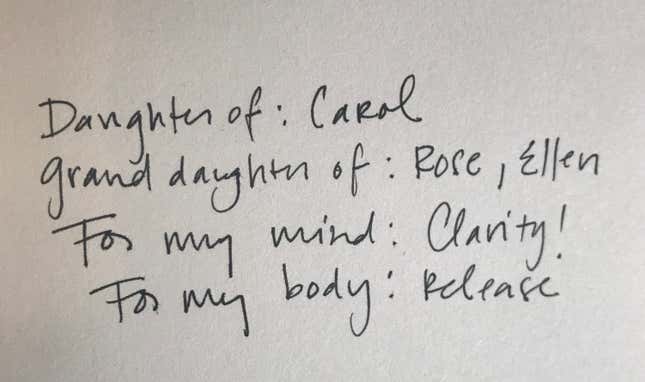 Daughter of: Carol
grand daughter of: Rose, Ellen
For my mind: Clarity!
For my body: Release